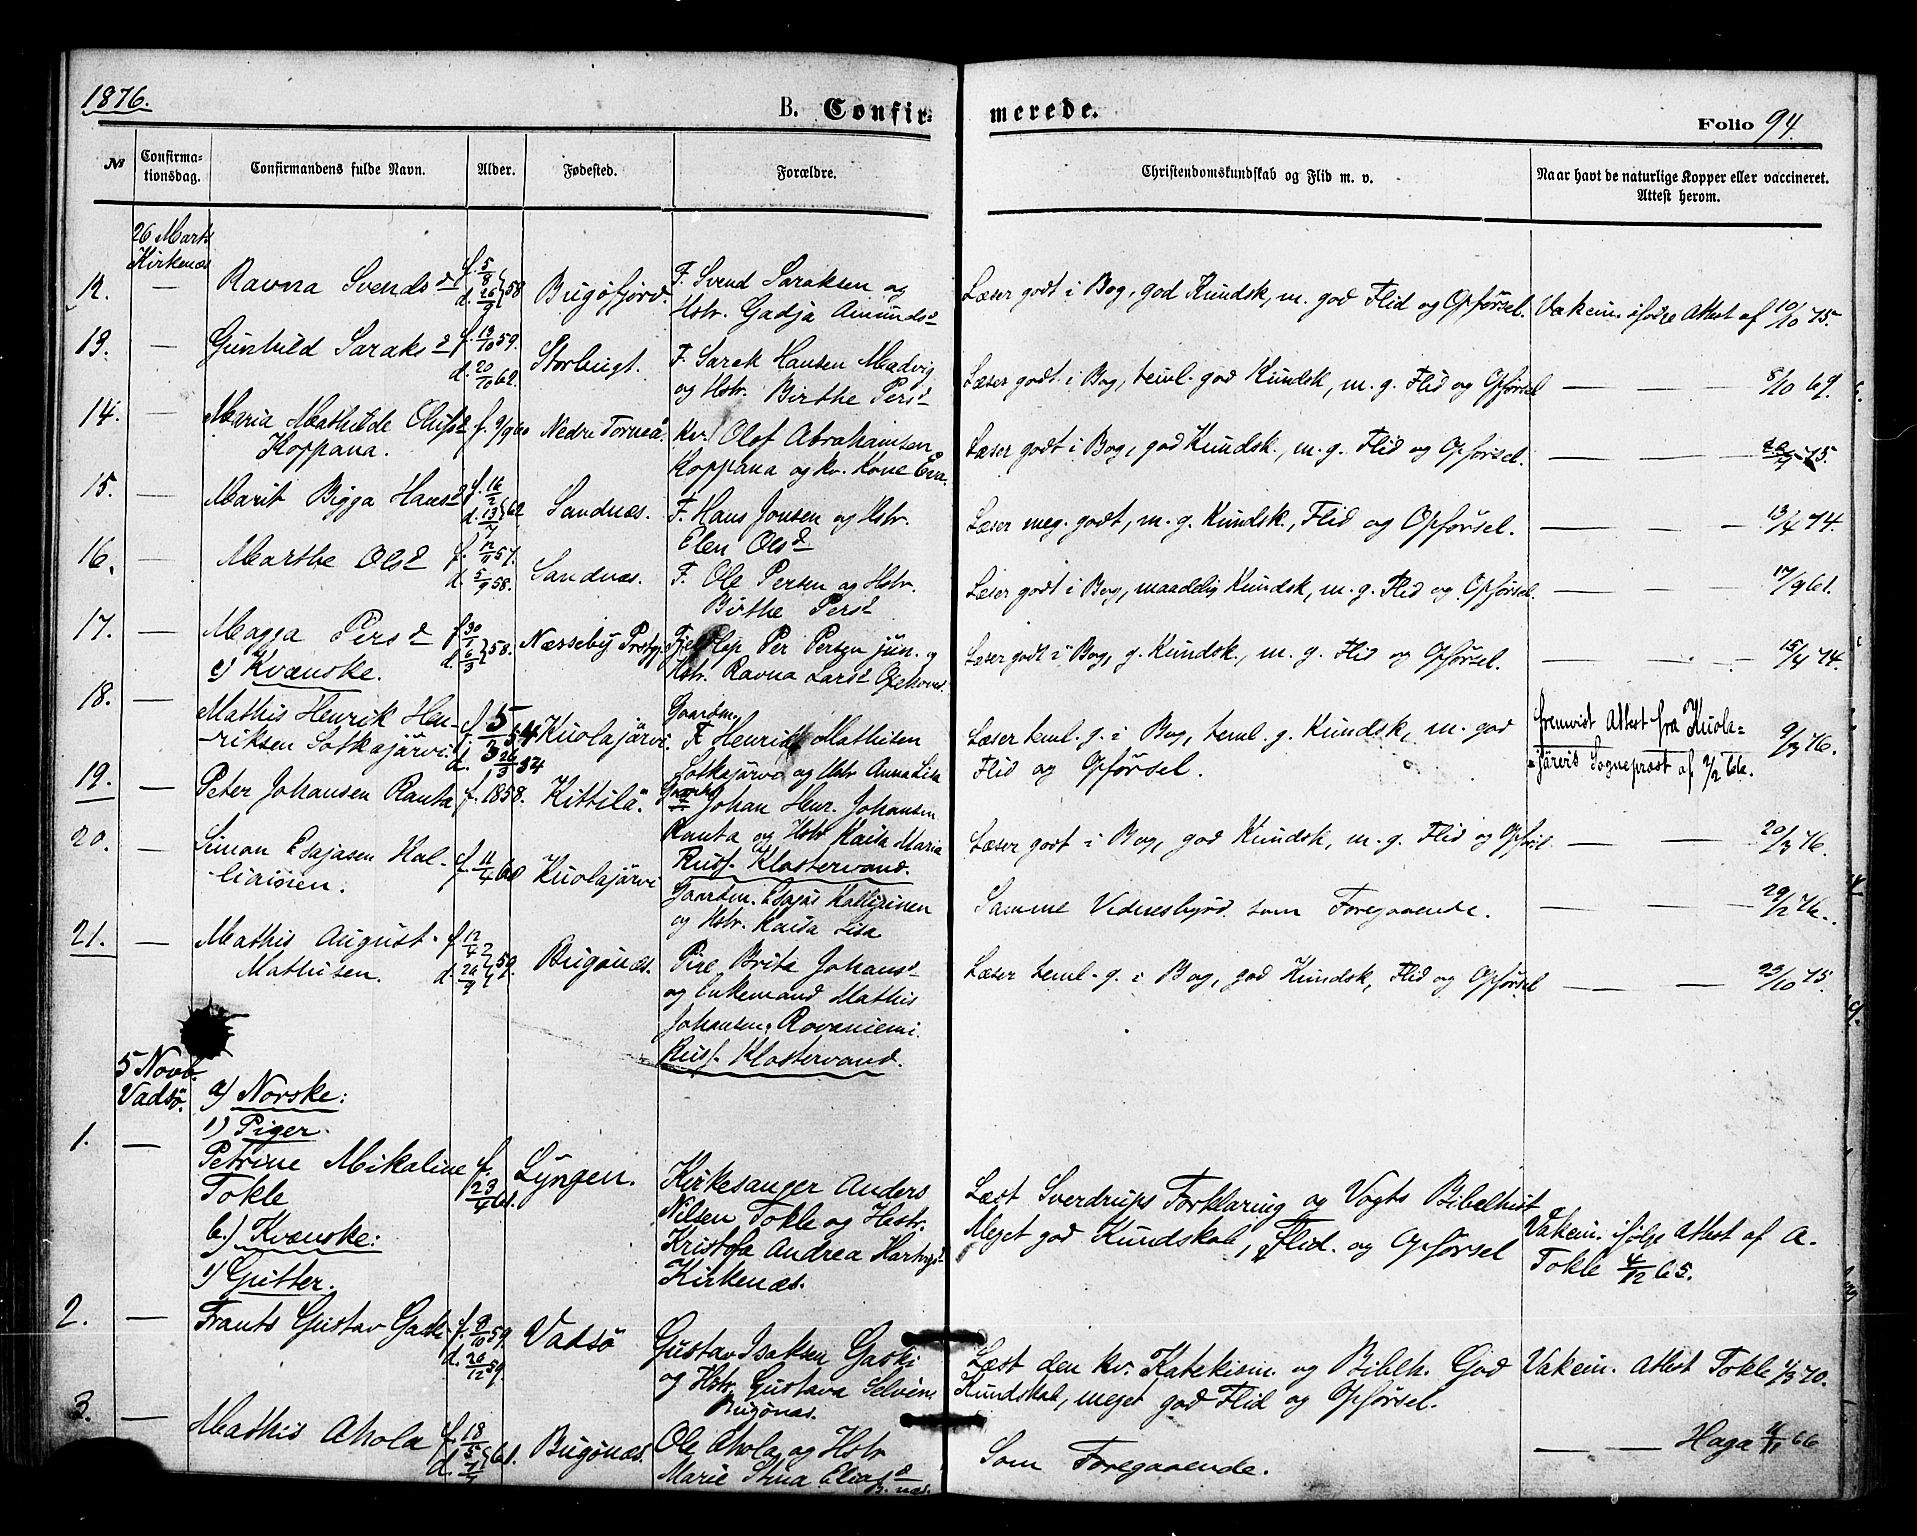 1876.
B. Confirmerede.
Folio 94.
№ Confirmationsdag. Confirmandens fulde Navn. Alder. Fødested. Forældre. Christendomskundskab og Flid m. v. Naar havt de naturlige Kopper eller vaccineret. Attest herom.
26 Marts
Kirkenæs
12. — Ravna Svendsd f. 5/8 d. 26/9 58 Bugöfjord. F. Svend Saraksen og
Hstr. Gadja Amundsd
Læser godt i Bog, god Kundsk, m. god Flid og Opførsel. Vakcin. ifølge Attest af 10/10 75.
13. — Gunhild Saraksd f. 13/10 59. Storbugt. F. Sarak Hansen Madvig
d. 20/10 62. og Hstr. Birthe Persd
Læser godt i Bog, teml. god Kundsk, m. g. Flid og Opførsel — — — 8/10 69.
14. — Maria Mathilde Olufsd f. 9/9 60 Nedre Torneå. Kv. Olof Abrahamsen
Koppana. Koppana og kv. Kone Eva
Læser godt i Bog, god Kundsk., m. g. Flid og Opførsel. — — — 75.
15. — Marit Bigga Hansd f. 16/2 d. 13/7 62 Sandnæs. F. Hans Jonsen og Hstr.
Elen Olsd
Læser meg. godt, m. g. Kundsk., Flid og Opførsel. — — — 13/4 74.
16. — Marthe Olsd f. 12/11 57. Sandnæs. F. Ole Persen og Hstr.
d. 5/9 58. Birthe Persd
Læser godt i Bog, maadelig Kundsk, m. g. Flid og Opførsel. — — — 17/9 61.
17. — Magga Persd f. 30/1 d. 6/3 58. Næsseby Prstgj. Fjeldlap Per Persen jun. og
Hstr. Ravna Larsd
Læser godt i Bog, g. Kundsk., m. g. Flid og Opførsel. — — — 15/4 74.
c) Kvænske.
18. Mathis Henrik Henriksen Sotkajärvi f. 5/3 54 d. 26/3 54 Kuolajärvi Gaardm.
F. Henrik Mathisen
Sotkajärvi og Hstr Anna Lisa
Læser teml. g. i Bog, teml. g. Kundsk, m. god
Flid og Opførsel.
fremvist Attest fra Kuolajärvis Sogneprest af 9/2 66. 9/3 76.
19. — Peter Johansen Ranta f. 1858. Kittilä. Johan Henr. Johansen
Ranta og Hstr Kaisa Maria
Russ. Klostervand.
Læser godt i Bog, god Kundsk, m. g. Flid og Opførs. — — 20/3 76.
20. — Simon Esajasen f. 11/4 60 Kuolajärvi
Gaardm. Esajas
og Hstr. Kaisa Lisa
Samme Vidnesbyrd som Foregaaende. — — — 29/2 76.
21. — Mathis August f. 12/4 d. 26/9 59. Bugönæs. Pige Brita Johansd
Mathisen. og Enkemand Mathis
Johansen, Rovaniemi.
Russ. Klostervand.
Læser teml. g. i Bog, god Kundsk, Flid og Opførsel — — 23/10 75.
5 Novb.
Vadsö.
a) Norske:
1) Piger.
1. — Petrine Mikaline f. 23/4 61. Lyngen. Kirkesanger Anders
Tokle Nilsen Tokle og Hstr.
Kristofa Andrea Hartvigsd
Kirkenæs.
Læst Sverdrups Forklaring og Vogts Bibelhist
Meget god Kundskab, Flid. og Opførsel
Vakcin. ifølge Attest af A.
Tokle 4/12 65.
b.) Kvænske:
1) Gutter.
2. — Frants Gustav Gaski f. 8/10 59. Vadsö Gustav Isaksen Gaski
d. 26/12 59. og Hstr. Gustava
Bugönæs.
Læst den kv. Katekism. og Bibelh. God
Kundskab, meget god Flid og Opførsel.
Vakcin. Attest Tokle 1/3 70.
3. — Mathis Ahola f. 18/5 d. 61. Bugönæs. Ole Ahola og Hstr
Marie Stina Eliasd
B.næs.
Som Foregaaende. — — Haga 66